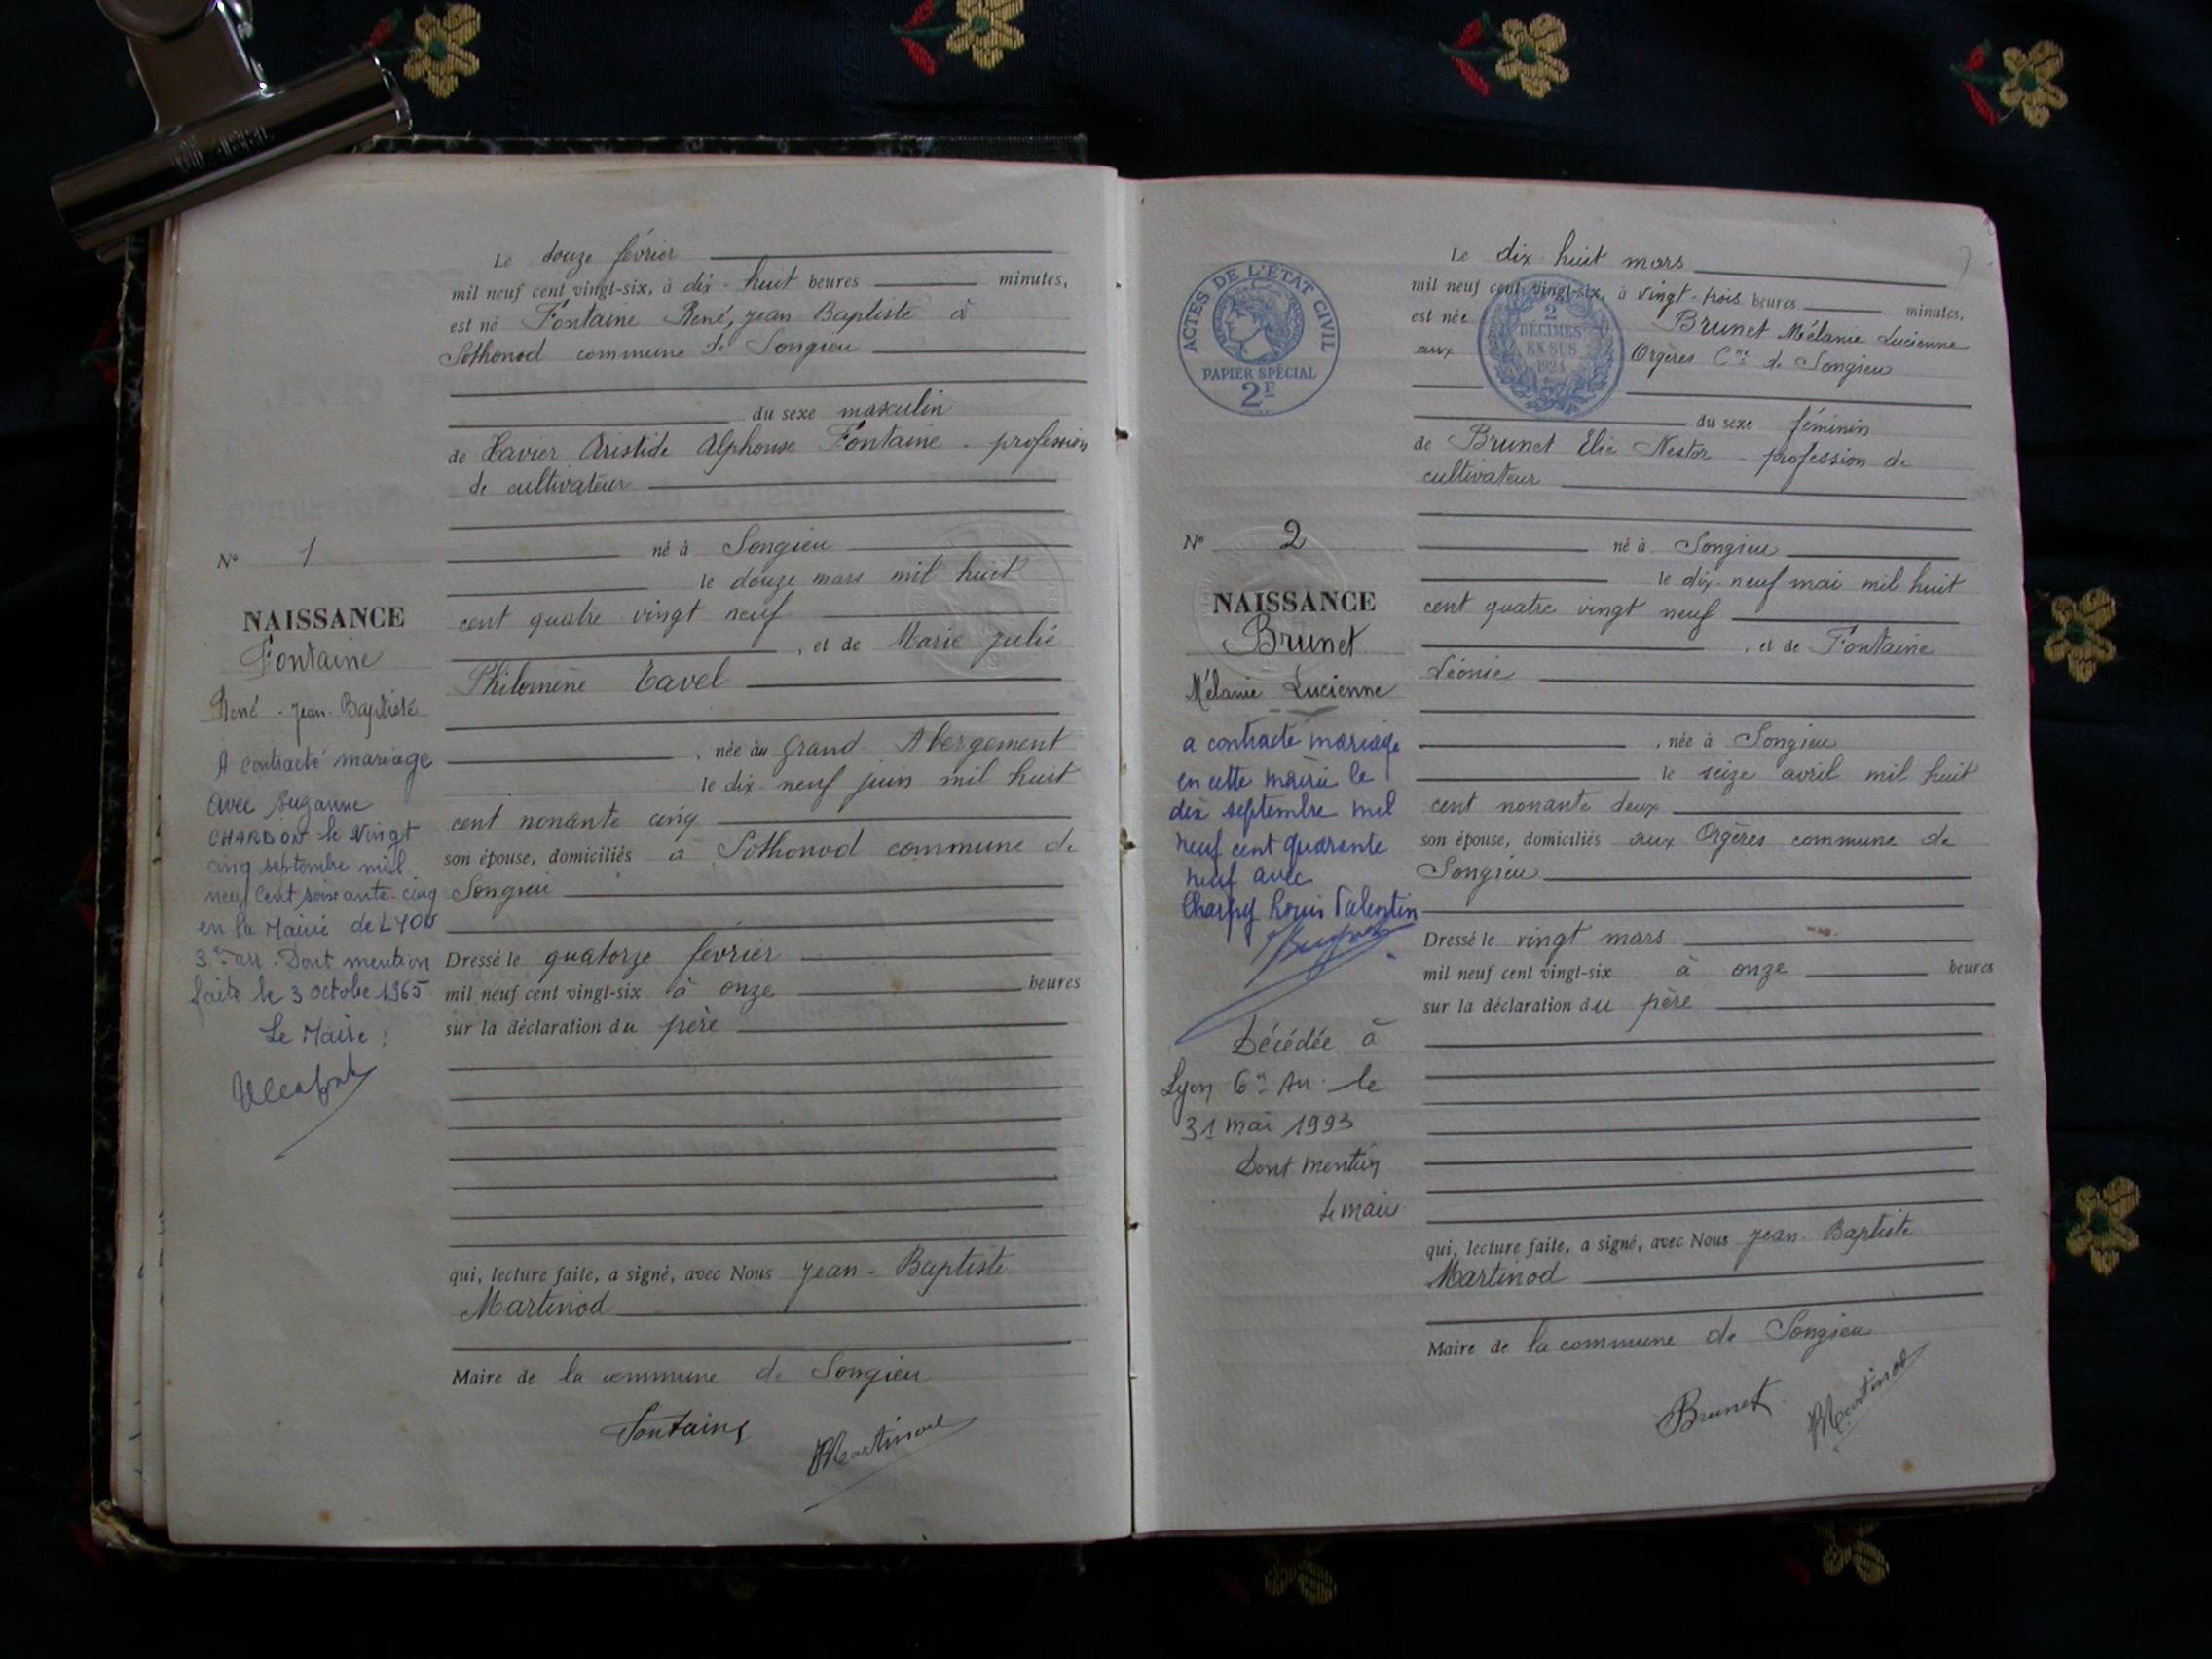 Le douze février
mil neuf cent vingt-six, à dix-huit heures minutes,
est né Fontaine René, Jean Baptiste à
Sothonod commune de Songieu
du sexe masculin
de Xavier Aristide Alphonse Fontaine - profession
de cultivateur
né à Songieu
le douze mars mil huit
cent quatre vingt neuf
, et de Marie Julie
Philomène Tavel
, née au Grand Abergement
le dix neuf juin mil huit
cent nonante cinq
son épouse, domiciliés à Sothonod commune de
Songieu
Dressé le quatorze février
mil neuf cent vingt-six à onze heures
sur la déclaration du père
qui, lecture faite, a signé, avec Nous Jean-Baptiste
Martinod
Maire de la commune de Songieu
Fontaine
Martinod
No 1
NAISSANCE
Fontaine
René-Jean-Baptiste
A contracté mariage
avec Suzanne
CHARDON le Vingt
cinq septembre mil
neuf cent soixante-cinq
en la Mairie de LYON
3e arr. Dont mention
faite le 3 octobre 1965
Le Maire :
ACTES DE L'ÉTAT CIVIL
PAPIER SPÉCIAL
2F
2
DÉCIMES
EN SUS
1924
Le dix huit mars
mil neuf cent vingt-six, à vingt-trois heures minutes,
est née Brunet Mélanie Lucienne
aux Orgères Cne de Songieu
du sexe féminin
de Brunet Elie Nestor - profession de
cultivateur
né à Songieu
le dix-neuf mai mil huit
cent quatre vingt neuf
, et de Fontaine
Léonie
, née à Songieu
le seize avril mil huit
cent nonante deux
son épouse, domiciliés aux Orgères commune de
Songieu
Dressé le vingt mars
mil neuf cent vingt-six à onze heures
sur la déclaration du père
qui, lecture faite, a signé, avec Nous Jean-Baptiste
Martinod
Maire de la commune de Songieu
Brunet
Martinod
No 2
NAISSANCE
Brunet
Mélanie Lucienne
a contracté mariage
en cette mairie le
dix septembre mil
neuf cent quarante
neuf avec
Louis Valentin
Décédée à
Lyon 6e Arr. le
31 mai 1993
Dont mention
Le maire